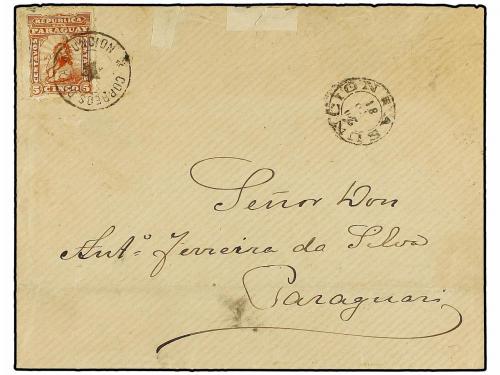 REPUBLICA DEL
PARAGUAY
CENTAVOS
CENTAVOS
5 CINCO 5
CORREOS
ASUNCION
18
Señor Don
Antº Ferreira da Silva
Paraguari